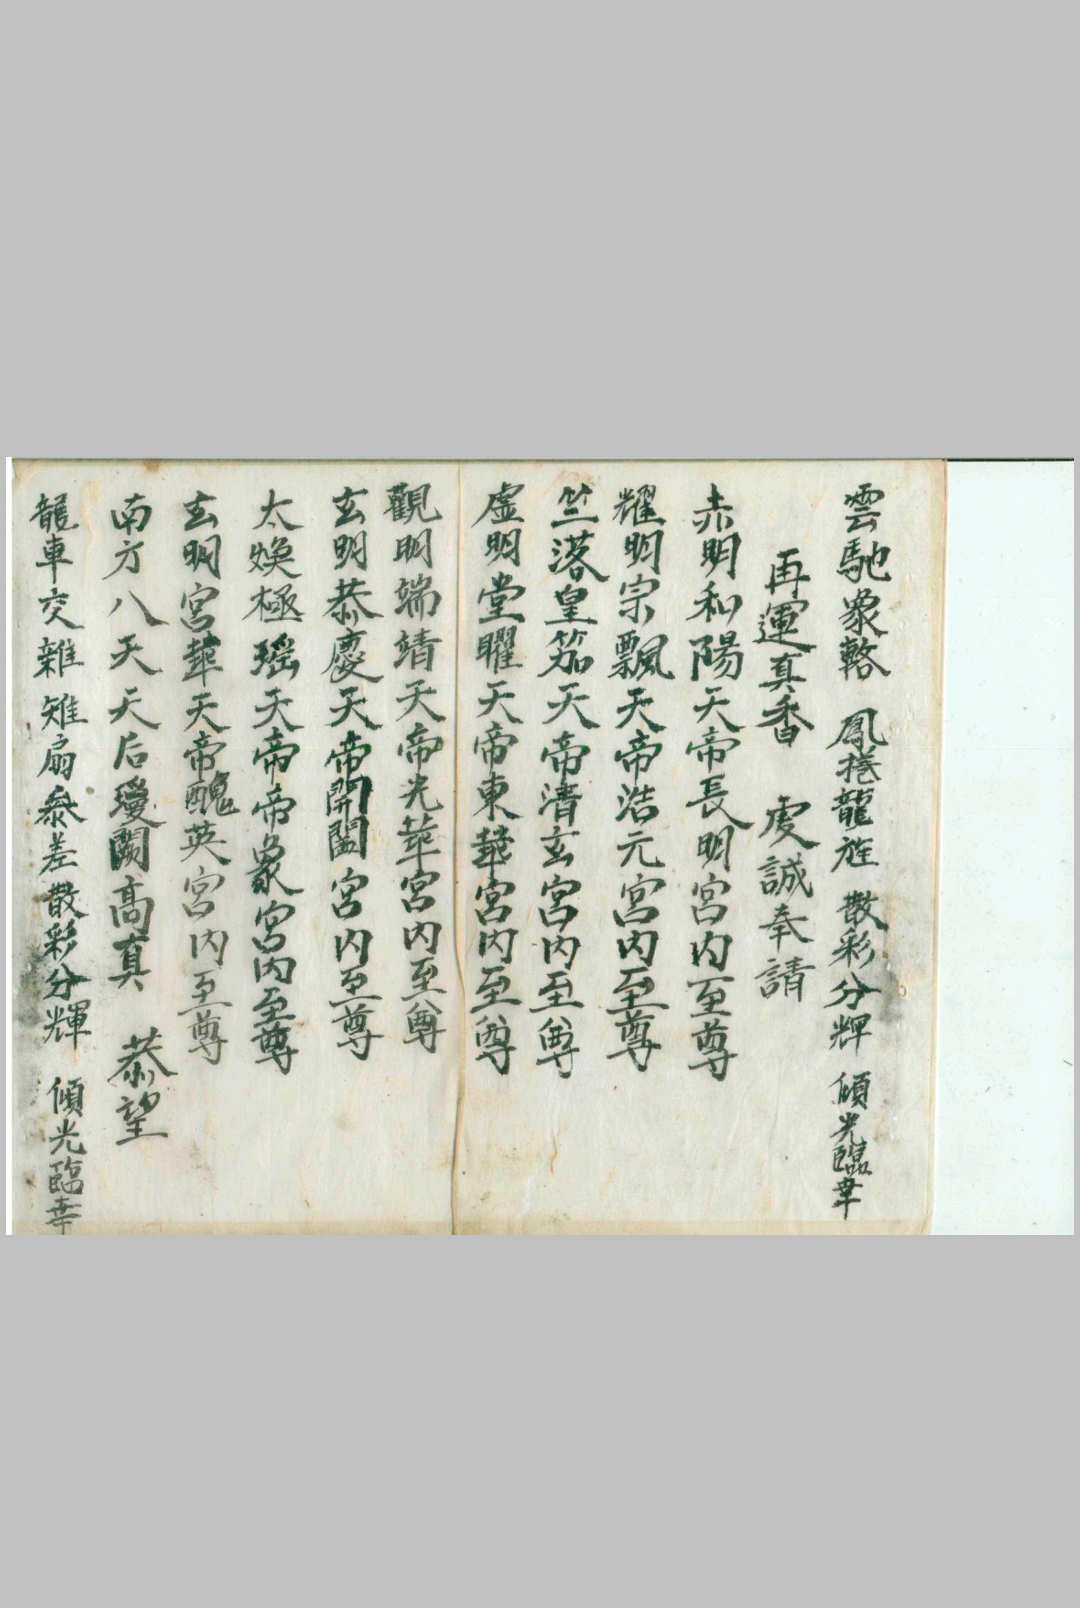 雲馳象輅 鳳捲龍旌 散彩分輝 傾光臨幸
再運真香 虔誠奉請
赤明和陽天帝長明宮内至尊
耀明宗飄天帝浩元宮内至尊
竺落皇笳天帝清玄宮内至尊
虚明堂曜天帝東華宮内至尊
觀明端靖天帝光華宮内至尊
玄明恭慶天帝開闔宮内至尊
太煥極瑶天帝帝象宮内至尊
玄明宮華天帝醜英宮内至尊
南方八天天后瓊闕高真 恭望
龍車交雜 雉扇參差散彩分輝 傾光臨幸